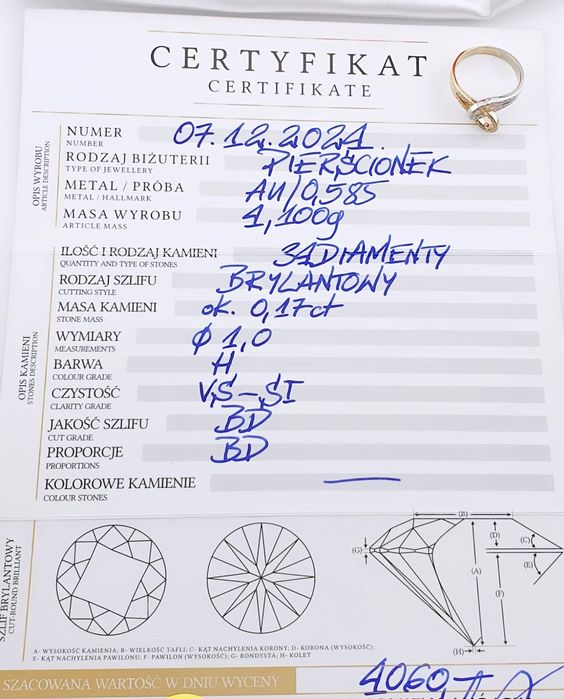 CERTYFIKAT
CERTIFIKATE
OPIS WYROBU
ARTICLE DESCRIPTION
NUMER 07.12.2021.
NUMBER
RODZAJ BIŻUTERII PIERŚCIONEK
TYPE OF JEWELLERY
METAL / PRÓBA AU/0,585
METAL / HALLMARK
MASA WYROBU 4,100g
ARTICLE MASS
OPIS KAMIENI
STONES DESCRIPTION
ILOŚĆ I RODZAJ KAMIENI 34 DIAMENTY
QUANTITY AND TYPE OF STONES
RODZAJ SZLIFU BRYLANTOWY
CUTTING STYLE
MASA KAMIENI ok. 0,17ct
STONE MASS
WYMIARY Ø 1,0
MEASUREMENTS
BARWA H
COLOUR GRADE
CZYSTOŚĆ VS-SI
CLARITY GRADE
JAKOŚĆ SZLIFU BD
CUT GRADE
PROPORCJE BD
PROPORTIONS
KOLOROWE KAMIENIE —
COLOUR STONES
SZLIF BRYLANTOWY
CUT-ROUND BRILLIANT
(B)
(D)
(C)
(G)
(E)
(A)
(F)
(H)
A- WYSOKOŚĆ KAMIENIA; B- WIELKOŚĆ TAFLI; C- KĄT NACHYLENIA KORONY; D- KORONA (WYSOKOŚĆ);
E- KĄT NACHYLENIA PAWILONU; F- PAWILON (WYSOKOŚĆ); G- RONDYSTA; H- KOLET
SZACOWANA WARTOŚĆ W DNIU WYCENY 4060